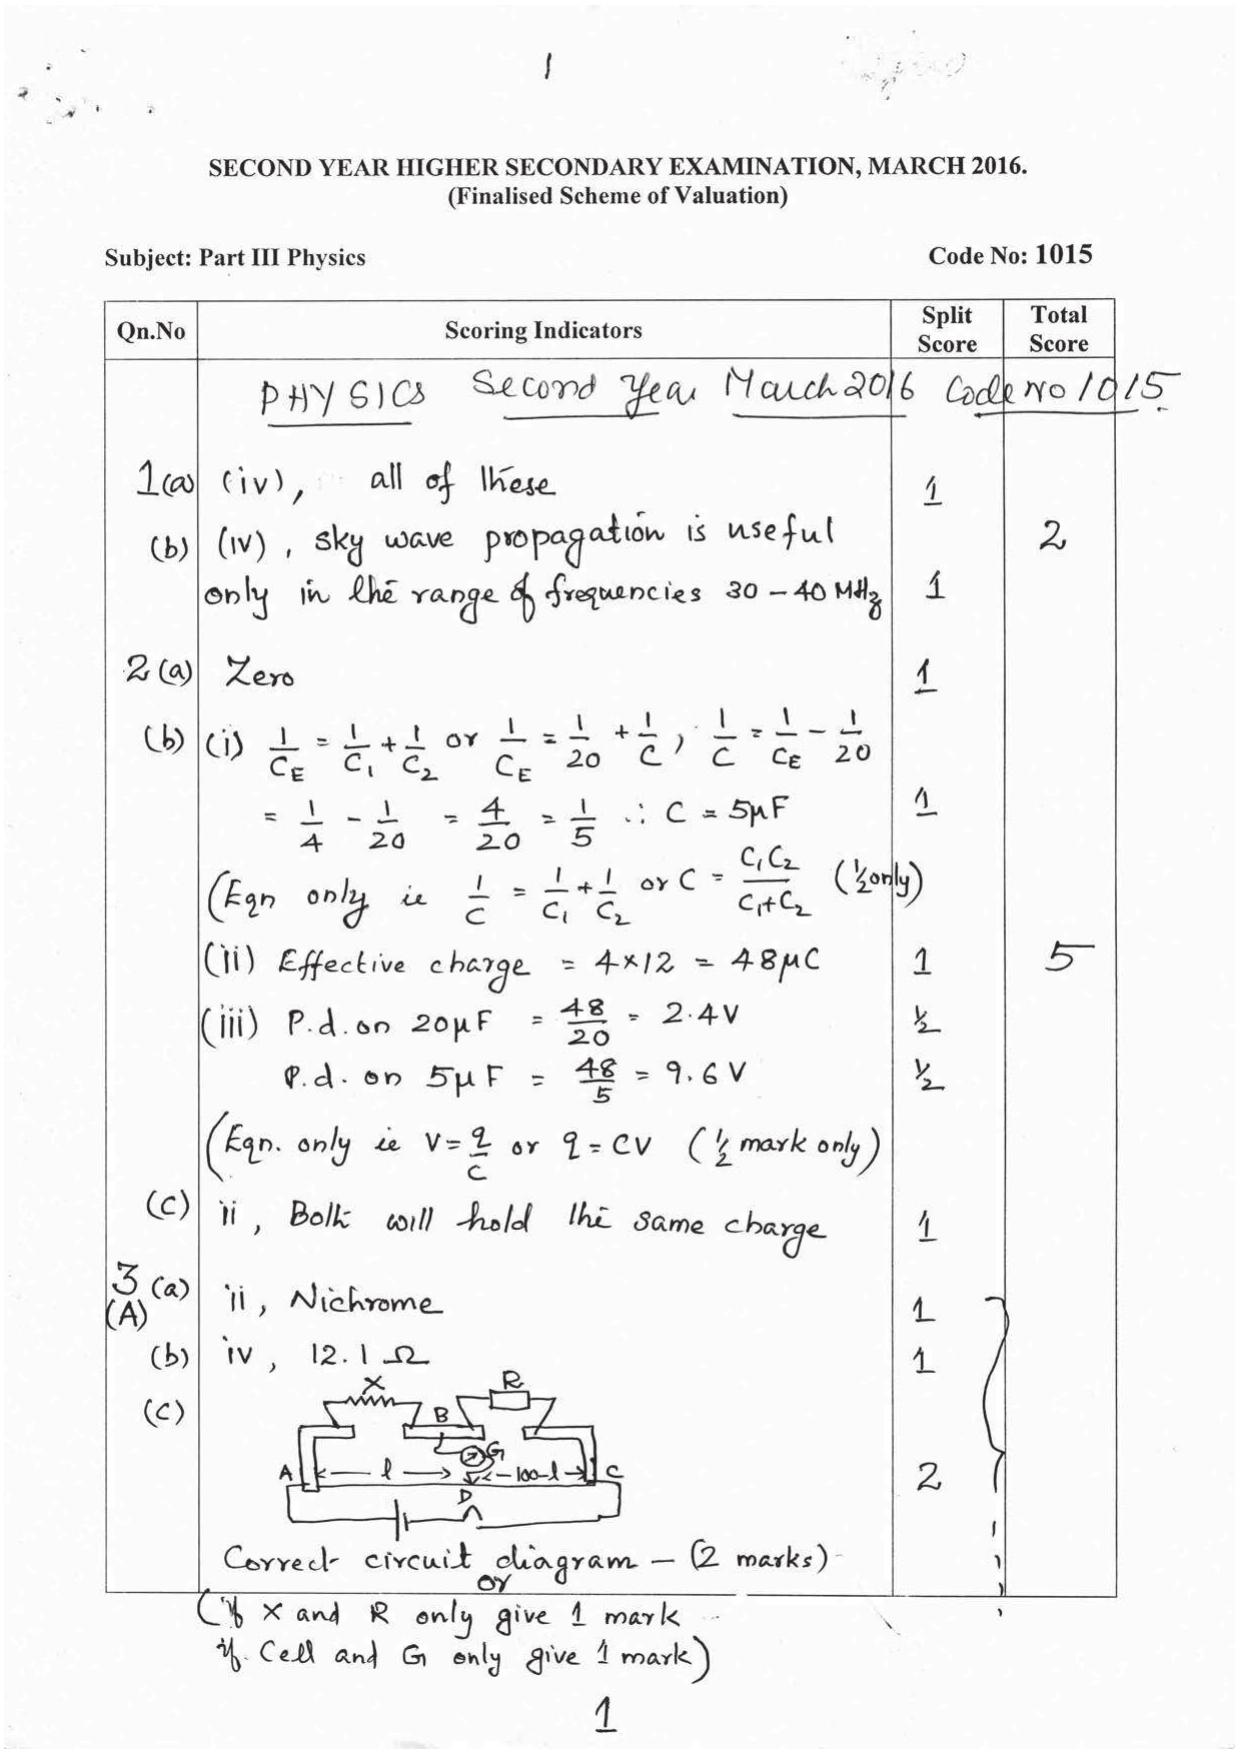 1
SECOND YEAR HIGHER SECONDARY EXAMINATION, MARCH 2016.
(Finalised Scheme of Valuation)
Subject: Part III Physics Code No: 1015
Qn.No Scoring Indicators Split Score Total Score
PHYSICS Second Year March 2016 Code No 1015.
1(a) (iv), all of these 1
(b) (iv), sky wave propagation is useful 2
only in the range of frequencies 30 – 40 MHz 1
2(a) Zero 1
(b) (i) 1/C_E = 1/C₁ + 1/C₂ or 1/C_E = 1/20 + 1/C, 1/C = 1/C_E – 1/20
= 1/4 – 1/20 = 4/20 = 1/5 ∴ C = 5μF 1
(Eqn only ie 1/C = 1/C₁ + 1/C₂ or C = C₁C₂/C₁+C₂ (½ only)
(ii) Effective charge = 4×12 = 48μC 1 5
(iii) P.d. on 20μF = 48/20 = 2.4V ½
P.d. on 5μF = 48/5 = 9.6V ½
(Eqn. only ie V = q/C or q = CV (½ mark only)
(c) ii, Both will hold the same charge 1
3 (a) ii, Nichrome 1
(A)
(b) iv, 12.1 Ω 1
(c) X R
B G
A l 100-l C 2
D
Correct circuit diagram – (2 marks)
or
(if X and R only give 1 mark
if. Cell and G only give 1 mark)
1